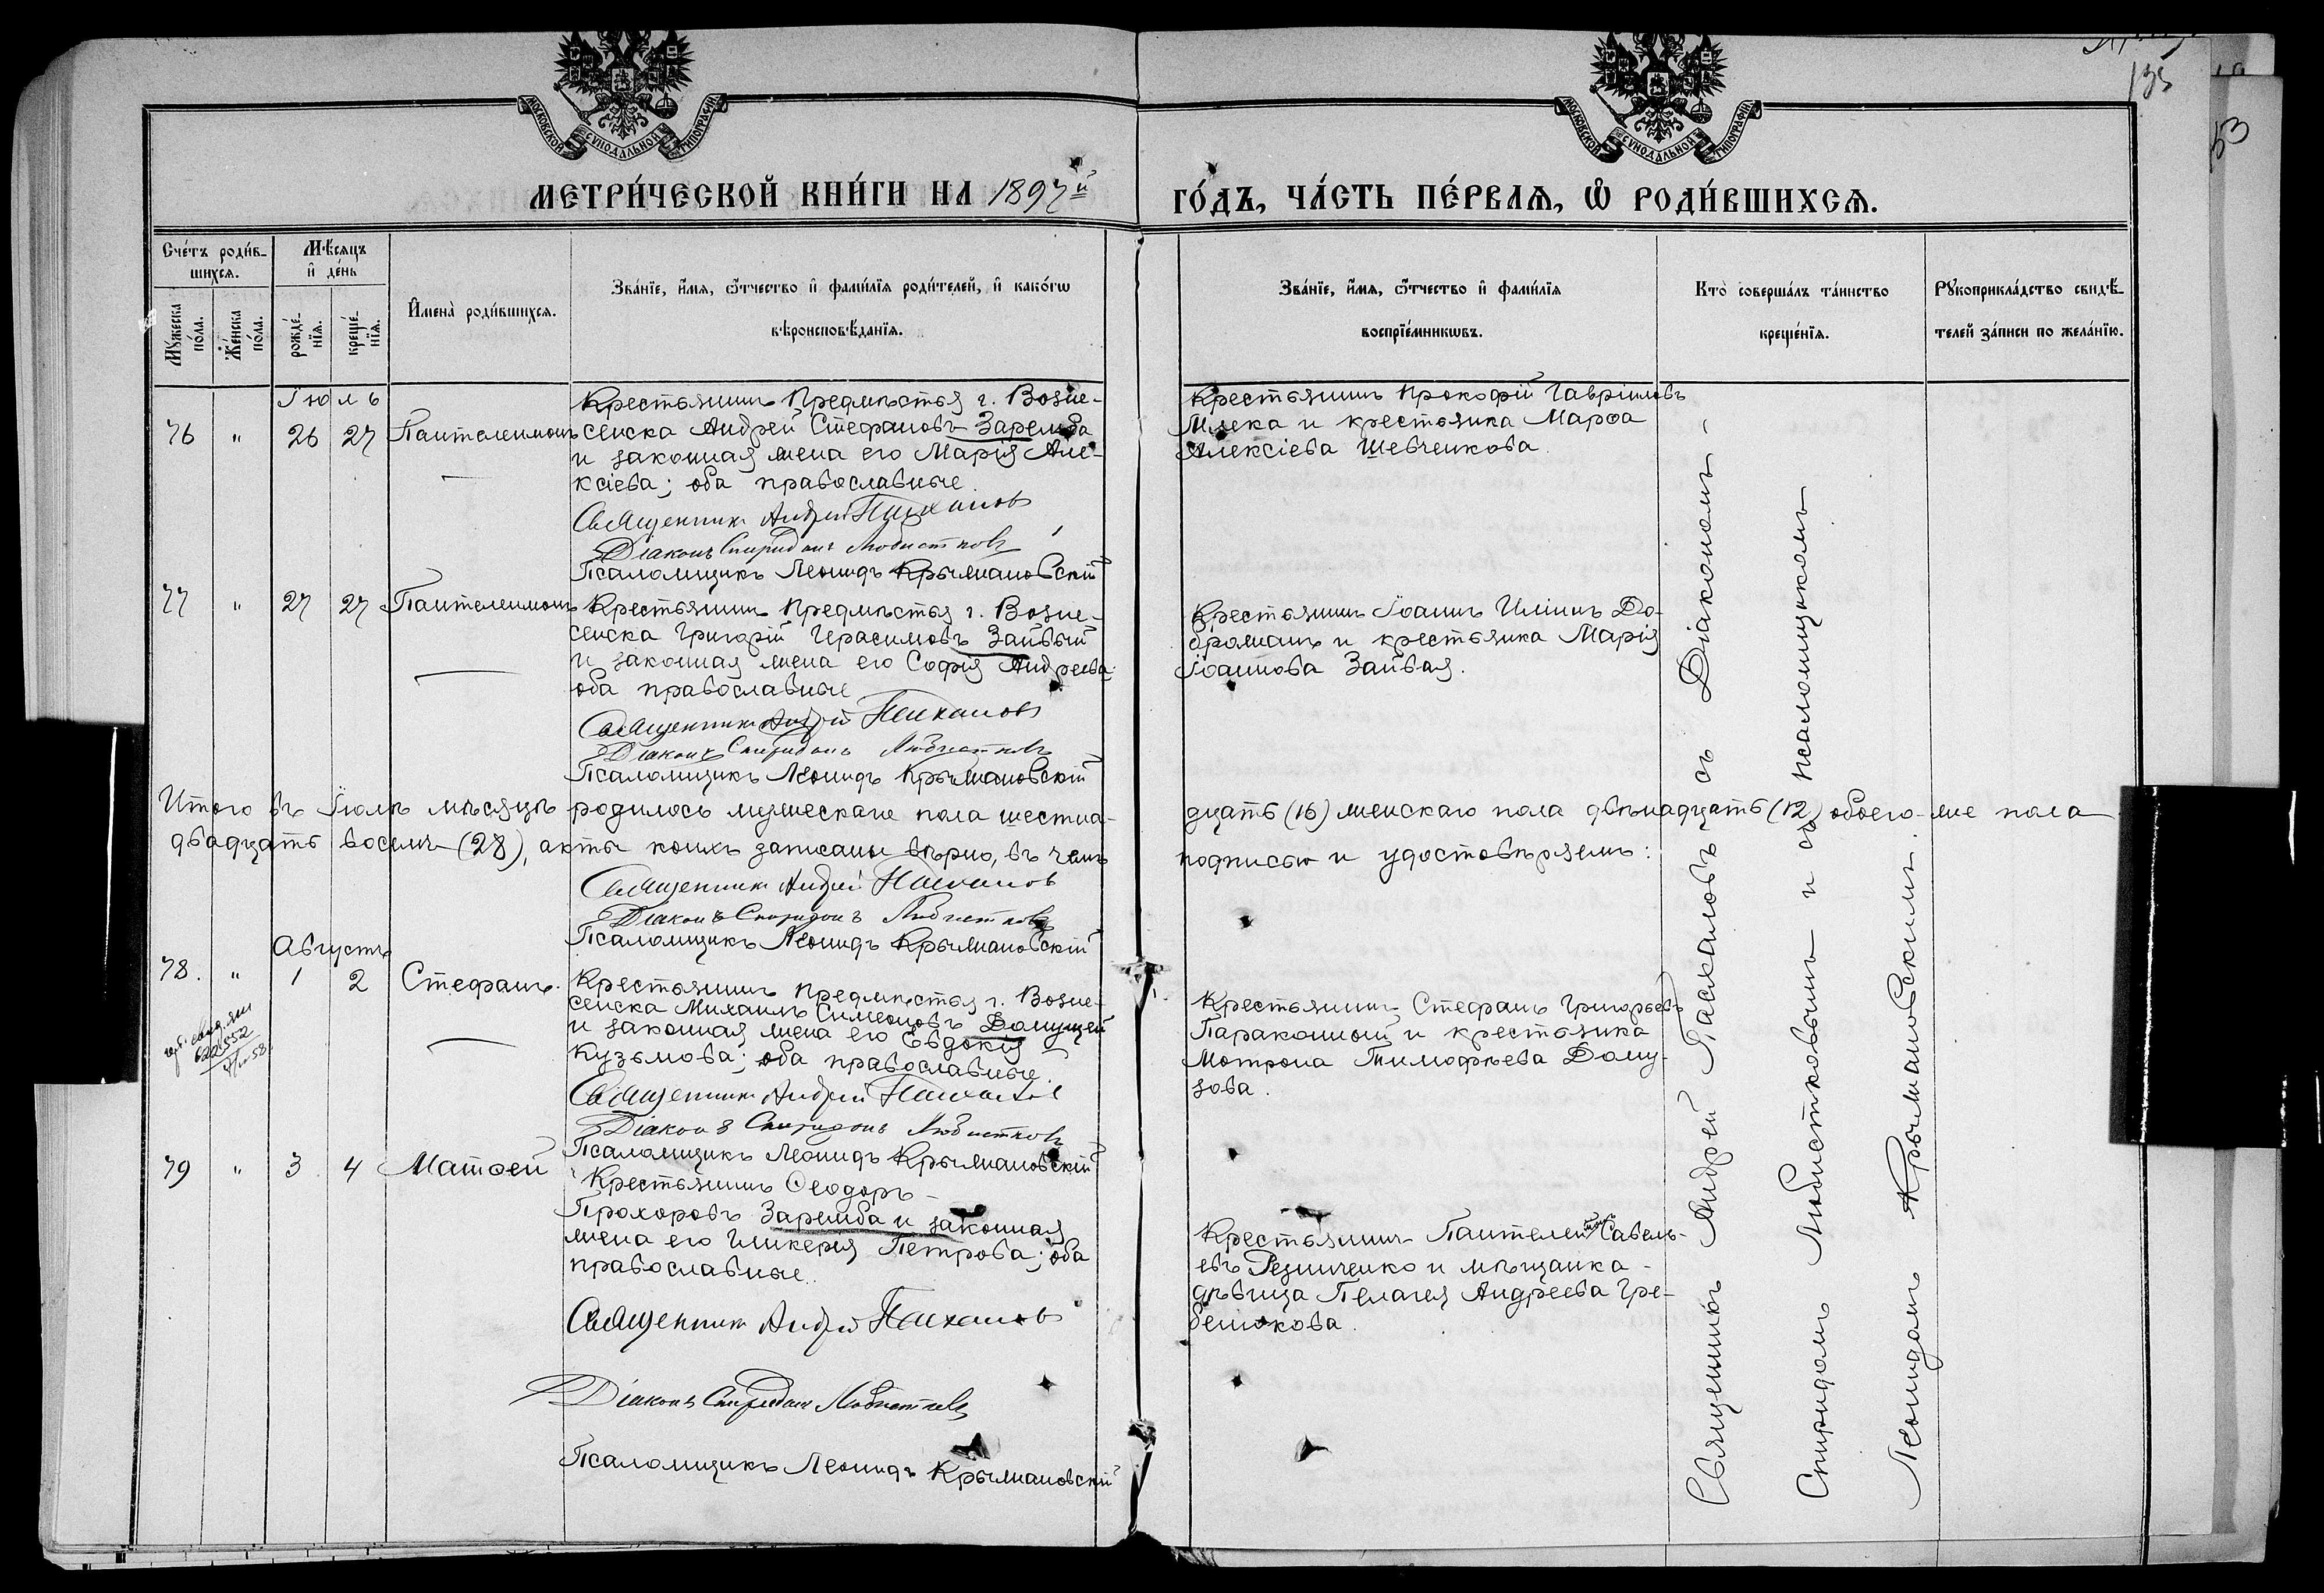 МОСКОВСКОЙ СѴНОДАЛЬНОЙ ТИПОГРАФІИ
МОСКОВСКОЙ СѴНОДАЛЬНОЙ ТИПОГРАФІИ
135
53
МЕТРИ́ЧЕСКОЙ КНИ́ГИ НА 1897й
ГО́ДЪ, ЧА́СТЬ ПЕ́РВАѦ, Ѡ҆ РОДИ́ВШИХСѦ.
Сче́тъ роди́в-
шихся.
Мѣ́сяцъ
и҆ де́нь
Мꙋ́жеска
по́ла.
Же́нска
по́ла.
рожде́-
нїя.
креще́-
нїя.
И҆мена̀ роди́вшихся.
Зва́нїе, и҆́мя, ѻ҆́тчество и҆ фами́лїя роди́телей, и҆ како́гѡ
вѣроисповѣ́данїя.
Зва́нїе, и҆́мя, ѻ҆́тчество и҆ фами́лїя
воспрїе́мникѡвъ.
Кто̀ соверша́лъ та́инство
креще́нїя.
Рꙋкоприкла́дство свидѣ́-
телей за́писи по жела́нїю.
Іюль
76 " 26 27 Пантелеимонъ
Крестьянинъ Предмѣстья г. Возне-
сенска Андрей Стефановъ Заремба
и законная жена его Марія Але-
ксіева; оба православные.
Священникъ Андрей Пасхаловъ
Діаконъ Спиридонъ Любистковъ
Псаломщикъ Леонидъ Крыжановскій
Крестьянинъ Прокофій Гавріиловъ
Млека и крестьянка Марѳа
Алексіева Шевченкова.
77 " 27 27 Пантелеимонъ
Крестьянинъ Предмѣстья г. Возне-
сенска Григорій Герасимовъ Зайвый
и законная жена его Софія Андреева
оба православные
Священникъ Андрей Пасхаловъ
Діаконъ Спиридонъ Любистковъ
Псаломщикъ Леонидъ Крыжановскій
Крестьянинъ Іоаннъ Иліинъ До-
броманъ и крестьянка Марія
Іоаннова Зайвая.
Итого въ Іюлѣ мѣсяцѣ родилось мужескаго пола шестна-
дцать (16) женскаго пола двѣнадцать (12) обоего-же пола
двадцать восемь (28), акты коихъ записаны вѣрно, въ чемъ
подписью и удостовѣряемъ:
Священникъ Андрей Пасхаловъ
Діаконъ Спиридонъ Любистковъ
Псаломщикъ Леонидъ Крыжановскій
Августъ
78. " 1 2 Стефанъ.
Крестьянинъ предмѣстья г. Возне-
сенска Михаилъ Симеоновъ Домущей
и законная жена его Евдокія
Кузьмова; оба православные.
Священникъ Андрей Пасхаловъ
Діаконъ Спиридонъ Любистковъ
Псаломщикъ Леонидъ Крыжановскій
Крестьянинъ Стефанъ Григорьевъ
Параконный и крестьянка
Мотрона Тимофѣева Дому-
зова.
79 " 3 4 Матѳей
Крестьянинъ Ѳеодоръ
Прохоровъ Заремба и законная
жена его Гликерія Петрова; оба
православные.
Священникъ Андрей Пасхаловъ
Діаконъ Спиридонъ Любистковъ
Псаломщикъ Леонидъ Крыжановскій
Крестьянинъ Пантелеимонъ Савель-
евъ Резниченко и мѣщанка
дѣвица Пелагея Андреева Гре-
бенюкова.
Священникъ Андрей Пасхаловъ съ Діакономъ
Спиридономъ Любистковымъ и съ псаломщикомъ
Леонидомъ Крыжановскимъ.